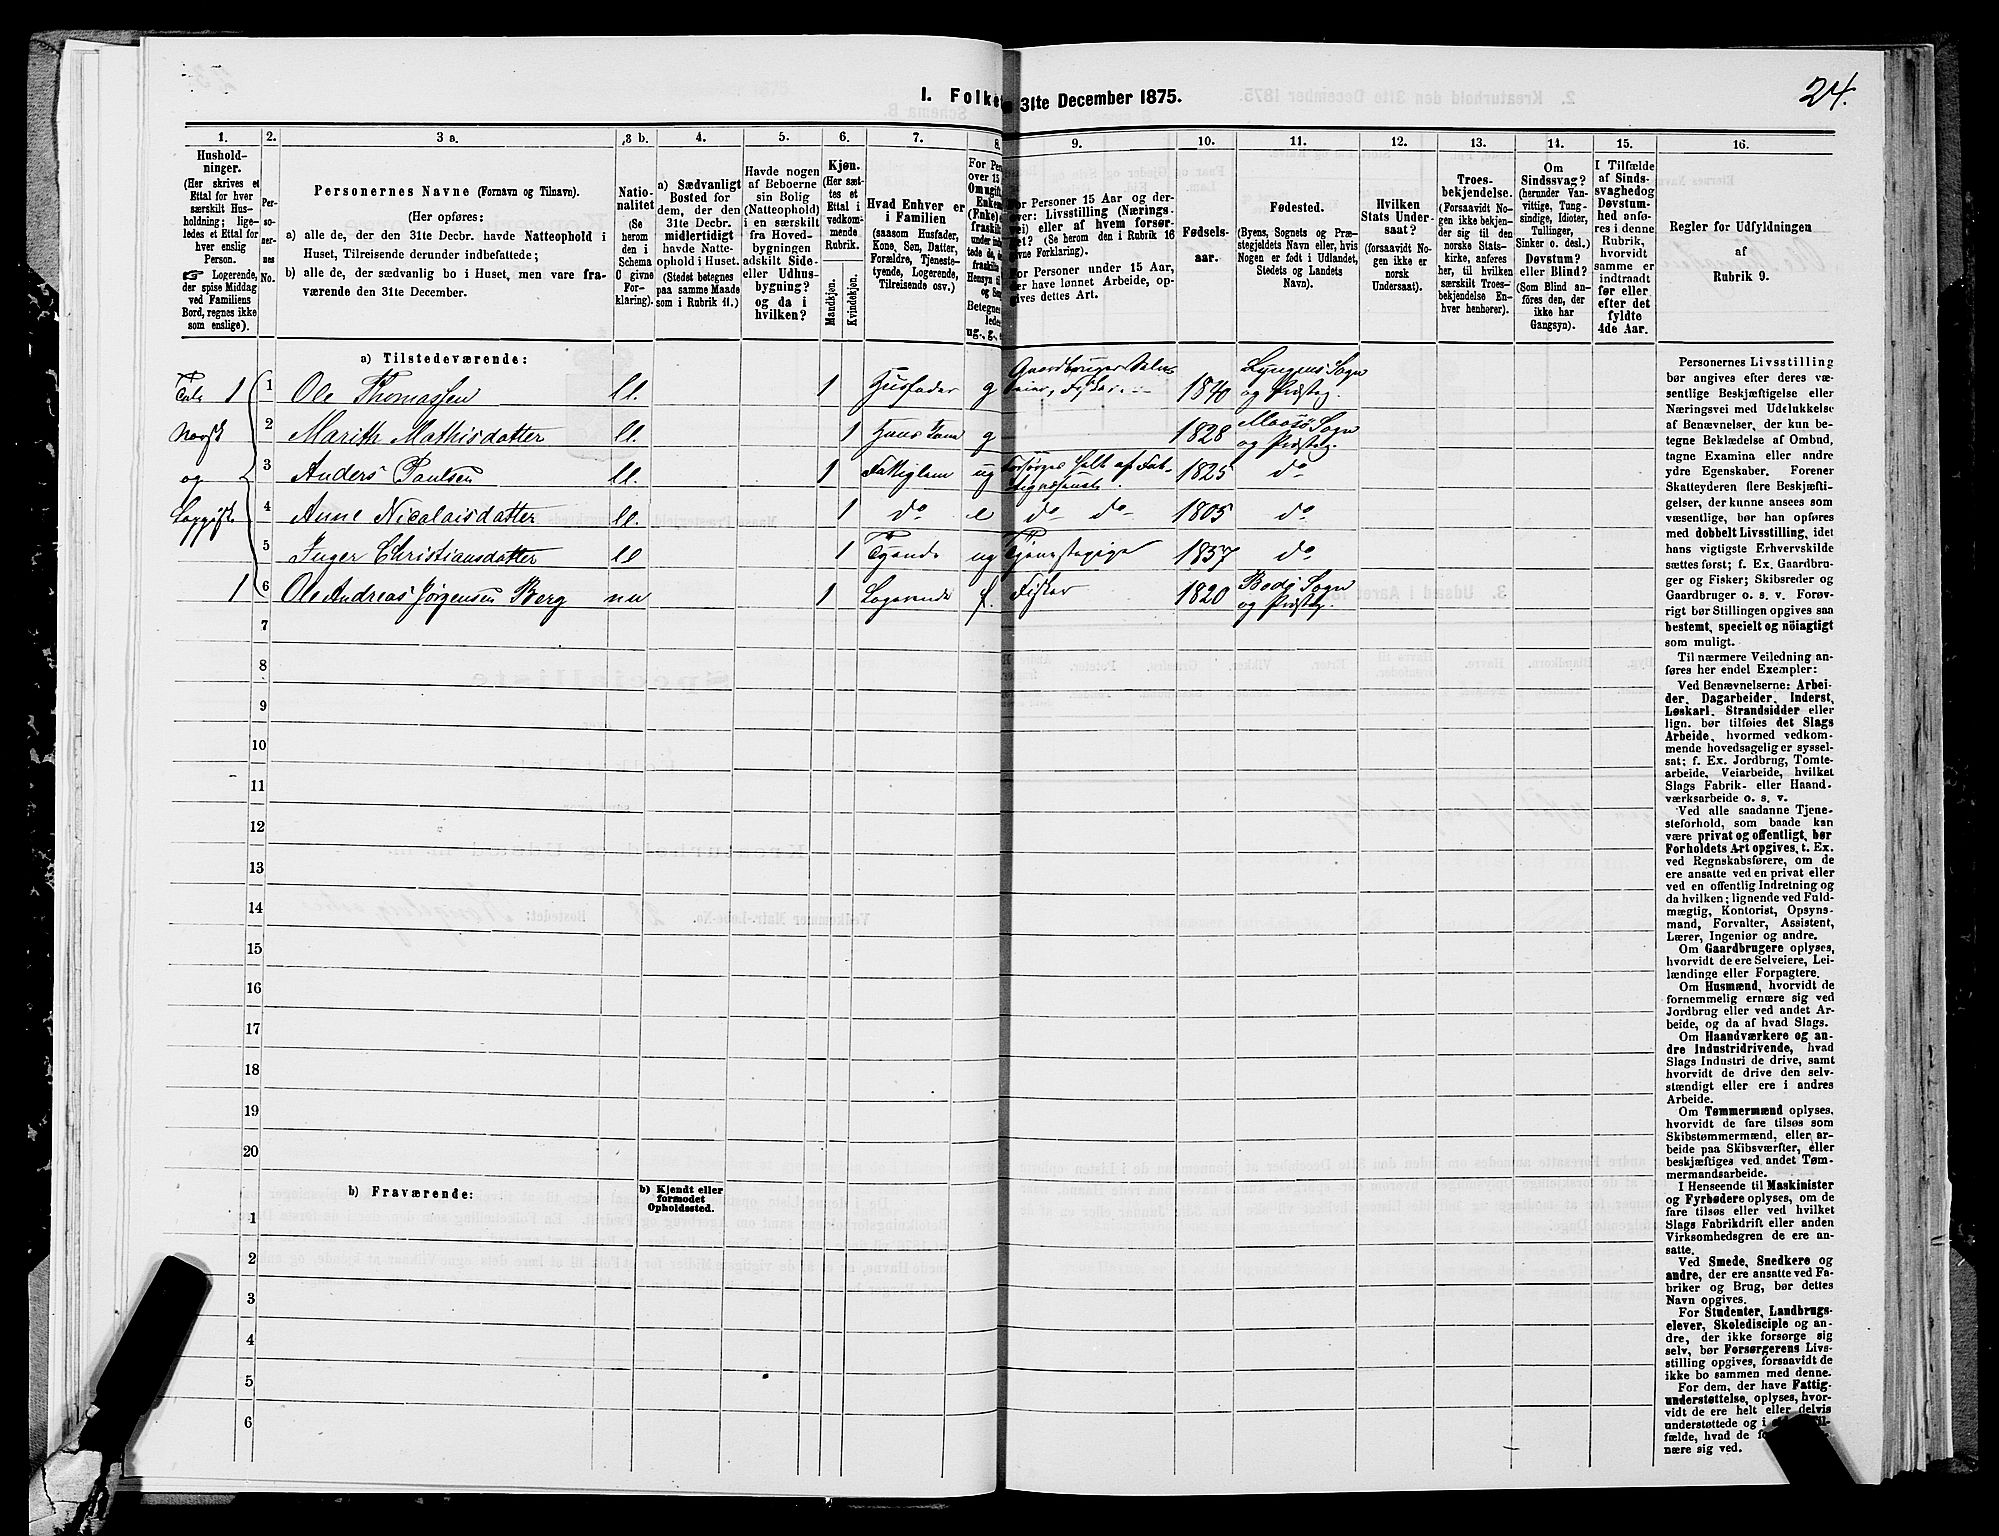 24.
I. Folke 31te December 1875.
1. 2. 3 a. 3 b. 4. 5. 6. 7. 8. 9. 10. 11. 12. 13. 14. 15. 16.
Hushold-
ninger.
(Her skrives et
Ettal for hver
særskilt Hus-
holdning; lige-
ledes et Ettal for
hver enslig
Person.
☞ Logerende,
der spise Middag
ved Familiens
Bord, regnes ikke
som enslige).
Per-
so-
ner-
nes
No.
Personernes Navne (Fornavn og Tilnavn).
(Her opføres:
a) alle de, der den 31te Decbr. havde Natteophold i
Huset, Tilreisende derunder indbefattede;
b) alle de, der sædvanlig bo i Huset, men vare fra-
værende den 31te December.
Natio-
nalitet
(Se
herom
den i
Schema
C givne
For-
klaring).
a) Sædvanligt
Bosted for
dem, der den
31te Decbr.
midlertidigt
havde Natte-
Ophold i Huset.
(Stedet betegnes
paa samme Maade
som i Rubrik 11.)
Havde nogen
af Beboerne
sin Bolig
(Natteophold)
i en særskilt
fra Hoved-
bygningen
adskilt Side-
eller Udhus-
bygning?
og da i
hvilken?
Kjøn.
(Her sæt-
tes et
Ettal i
vedkom-
mende
Rubrik.
Mandkjøn.
Kvindekjøn.
Hvad Enhver er
i Familien
(saasom Husfader,
Kone, Søn, Datter,
Forældre, Tjeneste-
tyende, Logerende,
Tilreisende osv.)
For Per
over 15
Om ugift
Enke
(Enke)
fraskilt
Betegnes
lede
ug., g.,
For Personer 15 Aar og der-
over: Livsstilling (Nærings-
vei) eller af hvem forsør-
get? (Se herom den i Rubrik 16
givne Forklaring).
For Personer under 15 Aar,
der have lønnet Arbeide, op-
gives dettes Art.
Fødsels-
aar.
Fødested.
(Byens, Sognets og Præ-
stegjeldets Navn eller, hvis
Nogen er født i Udlandet,
Stedets og Landets
Navn).
Hvilken
Stats Under-
saat?
(forsaavidt No-
gen ikke er
norsk
Undersaat).
Troes-
bekjendelse.
(Forsaavidt No-
gen ikke bekjen-
der sig til den
norske Stats-
kirke, anføres
her, til hvilken
særskilt Troes-
bekjendelse En-
hver henhører).
Om
Sindssvag?
(herunder Van-
vittige, Tung-
sindige, Idioter,
Tullinger,
Sinker o. desl.)
Døvstum?
eller Blind?
(Som Blind an-
føres den, der
ikke har
Gangsyn).
I Tilfælde
af Sinds-
svaghed og
Døvstum-
hed anfø-
res i denne
Rubrik,
hvorvidt
samme er
indtraadt
før eller
efter det
fyldte
4de Aar.
Regler for Udfyldningen
af
Rubrik 9.
a) Tilstedeværende:
Tale 1 1 Ole Thomassen ll. 1 Husfader g Gaardbruger Selv- eier, Fisker 1840 Lyngens Sogn og Præsteg.
Norsk 2 Marith Mathisdatter ll. 1 Hans Kone g 1828 Maasø Sogn og Præsteg.
og 3 Anders Paulsen ll. 1 Fattiglem ug Forsørges helt af Fat- tigvæsenet. 1825 do
Lappisk 4 Anne Nicolaisdatter ll. 1 do e do do 1805 do
5 Inger Christiansdatter ll 1 Tyende ug Tjenestepige 1857 do
1 6 Ole Andreas Jørgensen Berg nn 1 Logerende f. Fisker 1820 Bodø Sogn og Præsteg.
7
8
9
10
11
12
13
14
15
16
17
18
19
20
b) Fraværende:
b) Kjendt eller
formodet
Opholdssted.
1
2
3
4
5
6
Personernes Livsstilling
bør angives efter deres væ-
sentlige Beskjæftigelse eller
Næringsvei med Udelukkelse
af Benævnelser, der kun be-
tegne Beklædelse af Ombud,
tagne Examina eller andre
ydre Egenskaber. Forener
Skatteyderen flere Beskjæfti-
gelser, der kunne ansees som
væsentlige, bør han opføres
med dobbelt Livsstilling, idet
hans vigtigste Erhvervskilde
sættes først; f. Ex. Gaardbru-
ger og Fisker; Skibsreder og
Gaardbruger o. s. v. Forøv-
rigt bør Stillingen opgives saa
bestemt, specielt og nöiagtigt
som muligt.
Til nærmere Veiledning an-
føres her endel Exempler:
Ved Benævnelserne: Arbei-
der, Dagarbeider, Inderst,
Løskarl, Strandsidder eller
lign. bør tilføies det Slags
Arbeide, hvormed vedkom-
mende hovedsagelig er syssel-
sat; f. Ex. Jordbrug, Tomte-
arbeide, Veiarbeide, hvilket
Slags Fabrik- eller Haand-
værksarbeide o. s. v.
Ved alle saadanne Tjene-
steforhold, som baade kan
være privat og offentligt, bør
Forholdets Art opgives, t. Ex.
ved Regnskabsførere, om de
ere ansatte ved en privat eller
ved en offentlig Indretning og
da hvilken; lignende ved Fuld-
mægtig, Kontorist, Opsyns-
mand, Forvalter, Assistent,
Lærer, Ingeniør og andre.
Om Gaardbrugere oplyses,
hvorvidt de ere Selveiere, Lei-
lændinge eller Forpagtere.
Om Husmænd, hvorvidt de
fornemmelig ernære sig ved
Jordbrug eller ved andet Ar-
beide, og da af hvad Slags.
Om Haandværkere og an-
dre Industridrivende, hvad
Slags Industri de drive, samt
hvorvidt de drive den selv-
stændigt eller ere i andres
Arbeide.
Om Tømmermænd oplyses,
hvorvidt de fare tilsøs som
Skibstømmermænd, eller ar-
beide paa Skibsværfter, eller
beskjæftiges ved andet Tøm-
mermandsarbeide.
I Henseende til Maskinister
og Fyrbødere oplyses, om de
fare tilsøs eller ved hvilket
Slags Fabrikdrift eller anden
Virksomhedsgren de ere an-
satte.
Ved Smede, Snedkere og
andre, der ere ansatte ved Fa-
briker og Brug, bør dettes
Navn opgives.
For Studenter, Landbrugs-
elever, Skoledisciple og an-
dre, der ikke forsørge sig
selv, bør Forsørgerens Livs-
stilling opgives, forsaavidt de
ikke bo sammen med denne.
For dem, der have Fattig-
understøttelse, oplyses, hvor-
vidt de ere helt eller delvis
understøttede og i
fælde, hvad de
nære sig ved.